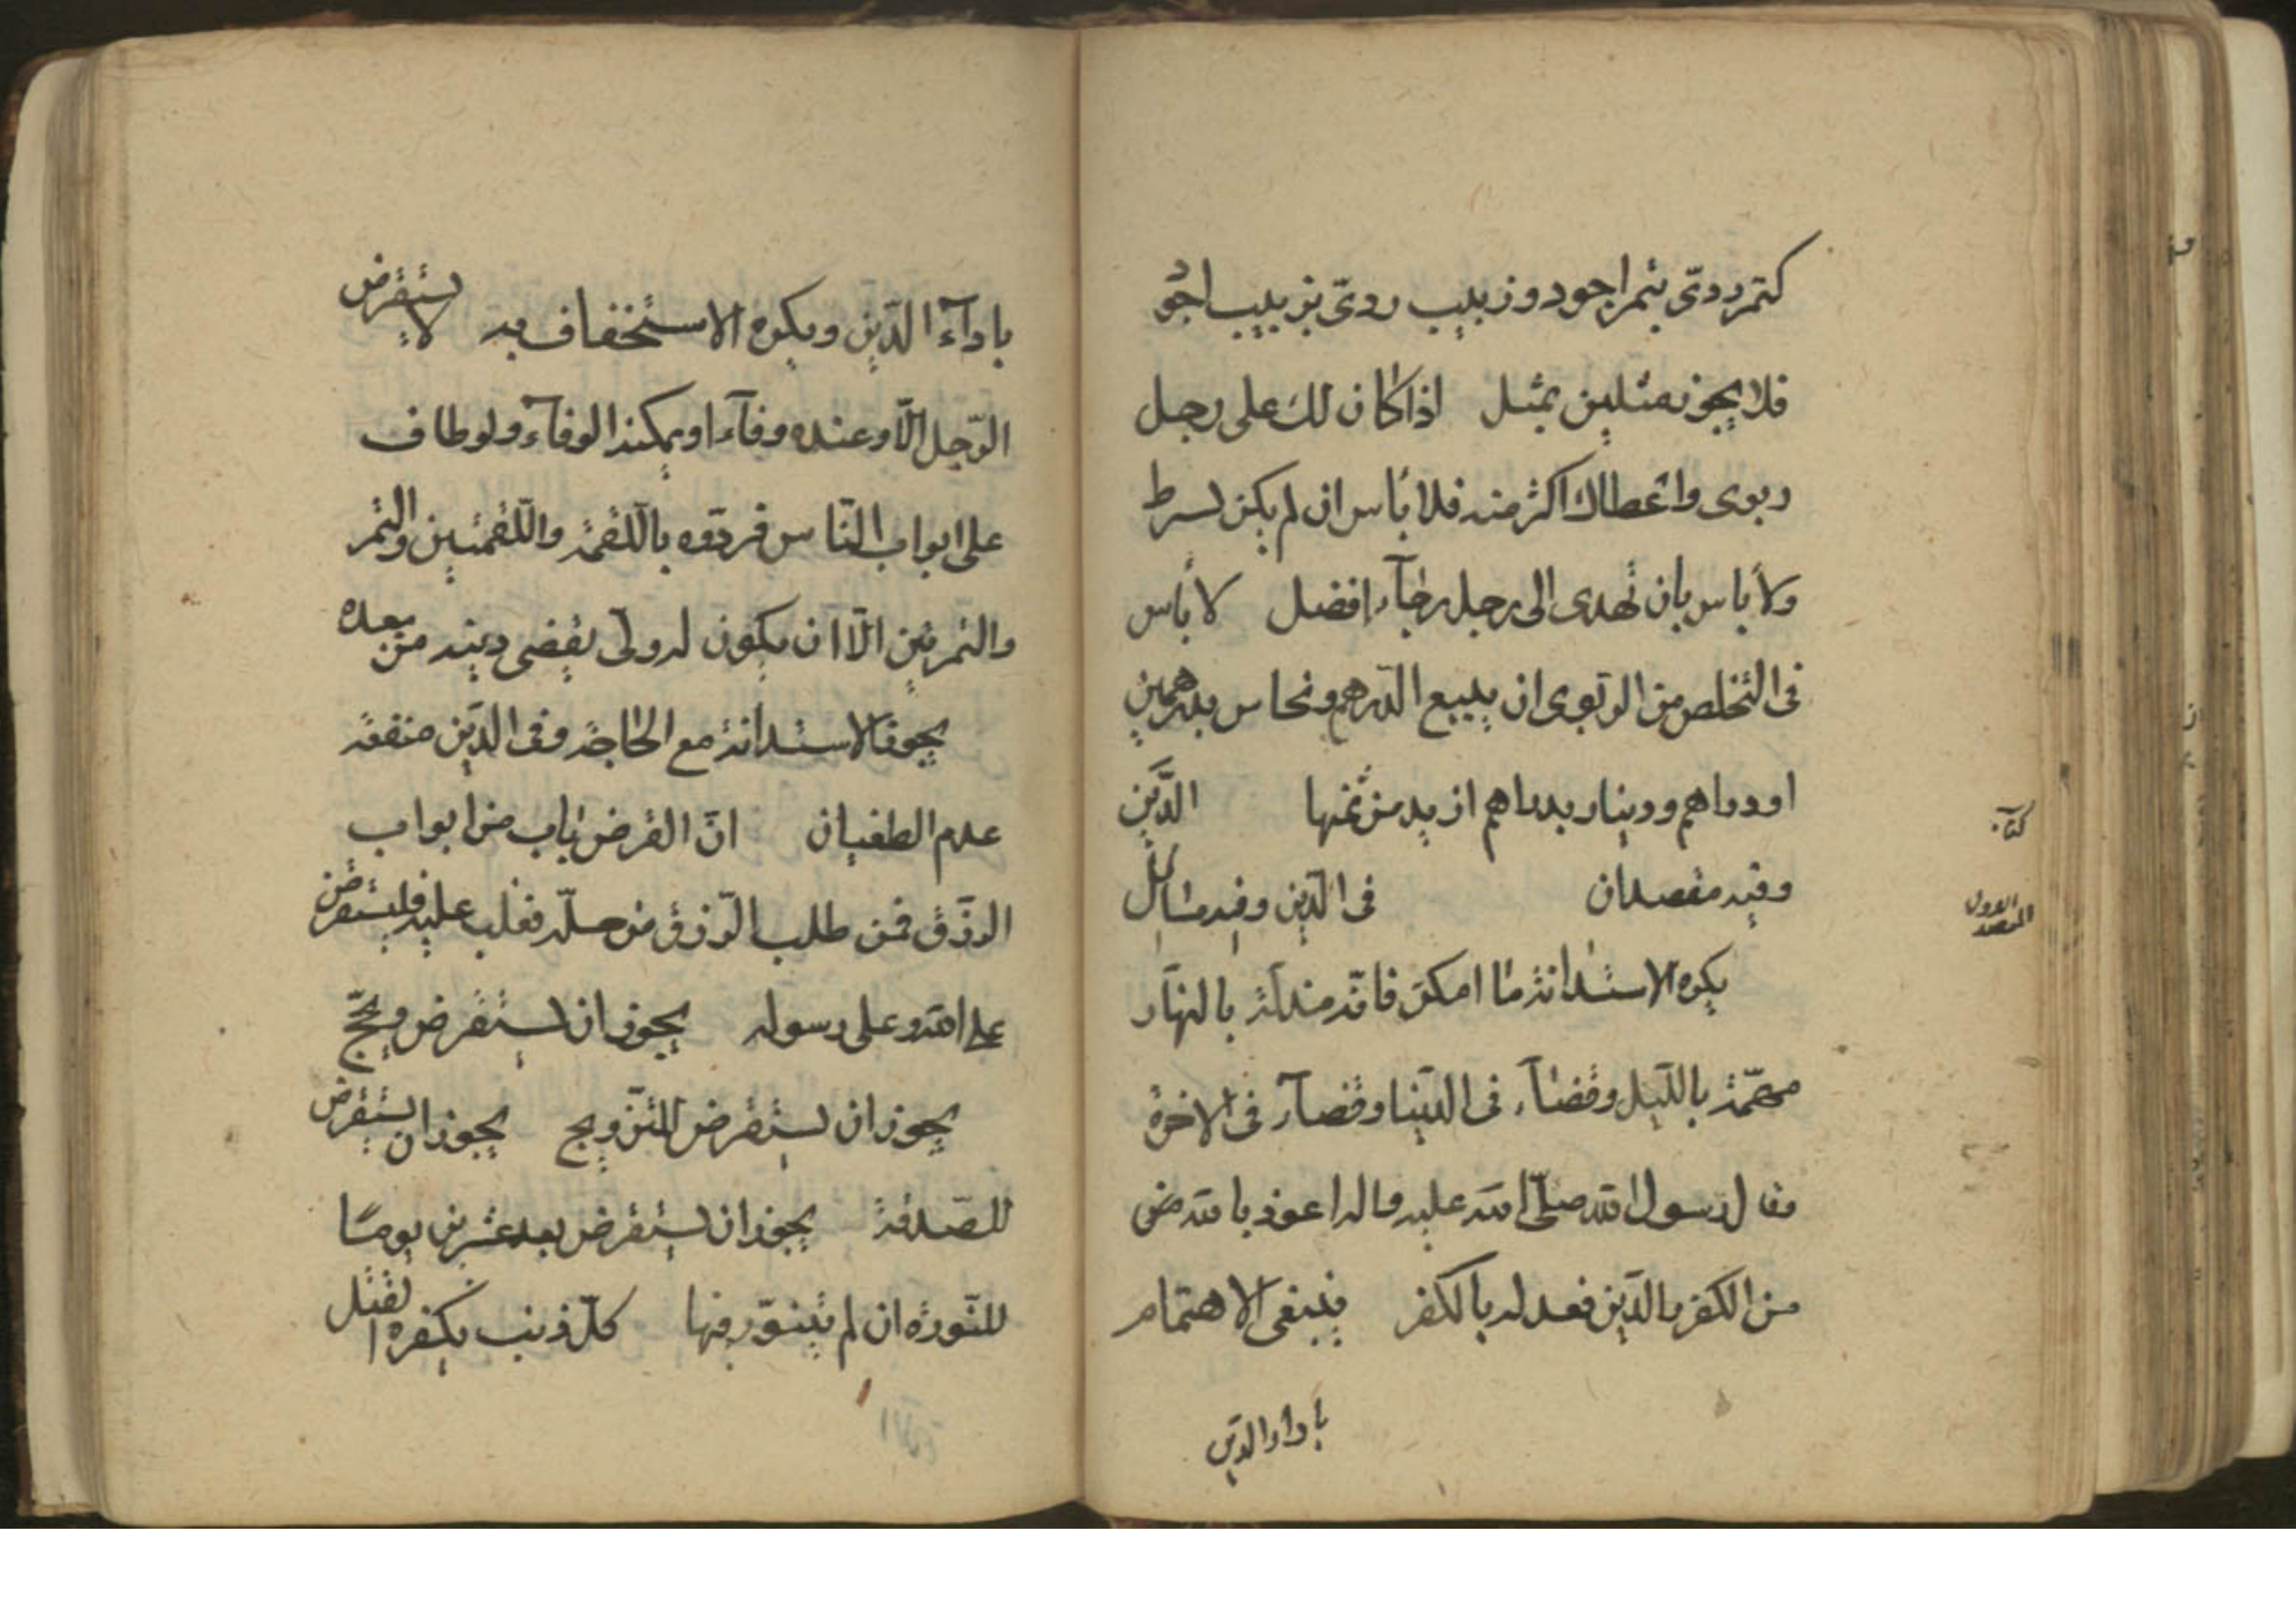 كتمر ردىّ بتمر اجود وزبيب ردىّ بزبيب اجو
فلا يجوز مثلين بمثل اذا كان لك على رجل
ربوى واعطاك اكثر منه فلا باس ان لم يكن بشرط
ولا باس بان تهدى الى رجل رجآء افضل لا باس
فى التخلص من الربوى ان يبيع الدّرهم ونحاس بدرهمين
او دراهم ودينار بدراهم ازيد من ثمنها الدَّين
كتاب
وفيه مقصدان فى الدّين وفيه مسائل
المقصد الاول
يكره الاستدانة ما امكن فانّه مذلّة بالنهار
مهمّة بالليل وقضآء فى الدّنيا وقضآء فى الاخرة
وقال رسول الله صلّى الله عليه واله اعوذ بالله من
من الكفر والدّين فعدله بالكفر ينبغى الاهتمام
بادآء الدّين
بادآء الدّين ويكره الاستخفاف به لا يستقرض
الرّجل الّا وعنده وفآء او يمكنه الوفآء ولو طاف
على ابواب النّاس فردّوه باللّقمة واللّقمتين والتمر
والتمرتين الّا ان يكون له ولىّ يقضى دينه من بعده
يجوز الاستدانة مع الحاجة وفى الدّين منفعة
عدم الطغيان انّ القرض باب من ابواب
الرزق فمن طلب الرّزق من حلّه فغلب عليه فليستقرض
على الله وعلى رسوله يجوز ان يستقرض ويحجّ
يجوز ان يستقرض للتّزويج يجوز ان يستقرض
للصّدقة يجوز ان يستقرض بعد عشرين يوما
للنّورة ان لم يتنوّر فيها كلّ ذنب يكفره القتل